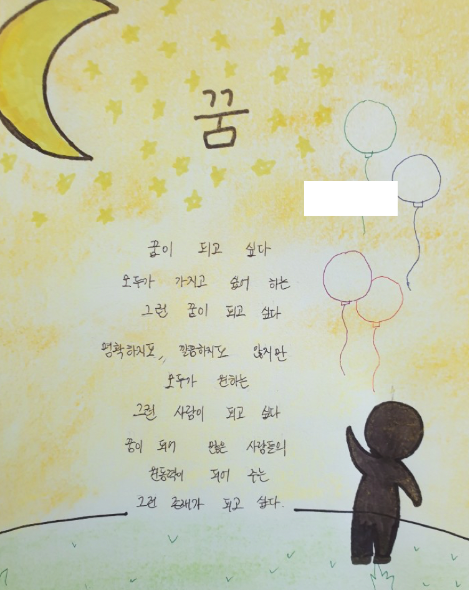 꿈
꿈이 되고 싶다
모두가 가지고 싶어 하는
그런 꿈이 되고 싶다
명확하지도, 깔끔하지도 않지만
모두가 원하는
그런 사람이 되고 싶다
꿈이 되어 많은 사람들의
원동력이 되어 주는
그런 존재가 되고 싶다.